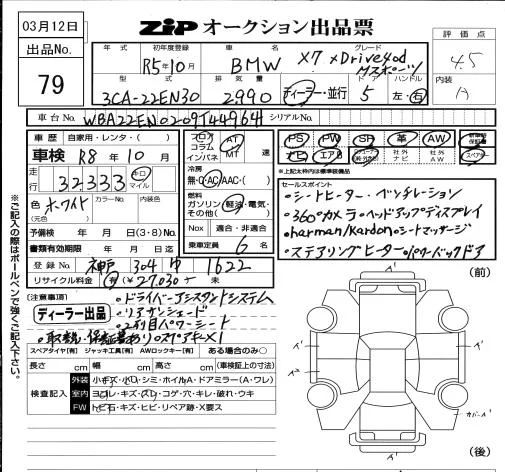 03月12日
ZIP オークション出品票
出品No.
79
評価点
4.5
内装
A
年式
初年度登録
R5年10月
車名
BMW
グレード
X7 xDrive40d
Mスポーツ
型式
3CA-22EN30
排気量
2,990
ディーラー・並行
ドア
5
ハンドル
左・右
車台No.
WBA22EN0209T44964
シリアルNo.
車歴 自家用・レンタ・( )
車検 R8年10月
走行 32333 キロ マイル
色 ホワイト
(元色)
カラーNo.
内装色
予備検 年 月 日(3・8)No.
書類有効期限 年 月 日迄
登録No. 神戸 304 ゆ 1622
リサイクル料金 (有)(¥27,030-) 未
フロア コラム インパネ
AT MT 速
冷房
無・C・AC・AAC・( )
燃料
ガソリン・軽油・電気・その他( )
Nox 適合・非適合
乗車定員 6 名
PS PW SR 革 AW
ナビ エアB 社外ナビ 社外AW スペアキー
*上記太枠内は標準装備品
セールスポイント
・シートヒーター・ベンチレーション
・360°カメラ・ヘッドアップディスプレイ
・harman/kardon・シートマッサージ
・ステアリングヒーター・パワーバックドア
(注意事項)
ディーラー出品
・ドライバーアシスタントシステム
・リアサンシェード
・2列目パワーシート
・取説・保証書あり・スペアキー×1
スペアタイヤ[有] ジャッキ工具[有] AWロックキー[有] ある場合のみ○
長さ cm 幅 cm 高さ cm (車検証上の寸法)
検査記入
外装 小キズ・凹・シミ・ホイルA・ドアミラー(A・ワレ)
室内 ヨゴレ・キズ・スレ・コゲ・穴・キレ・破れ・ウキ
FW トビ石・キズ・ヒビ・リペア跡・X要ス
※ご記入の際はボールペンで強くご記入下さい。
(前)
A'
A'
A'
A²
A'
カバーA'
A'
(後)